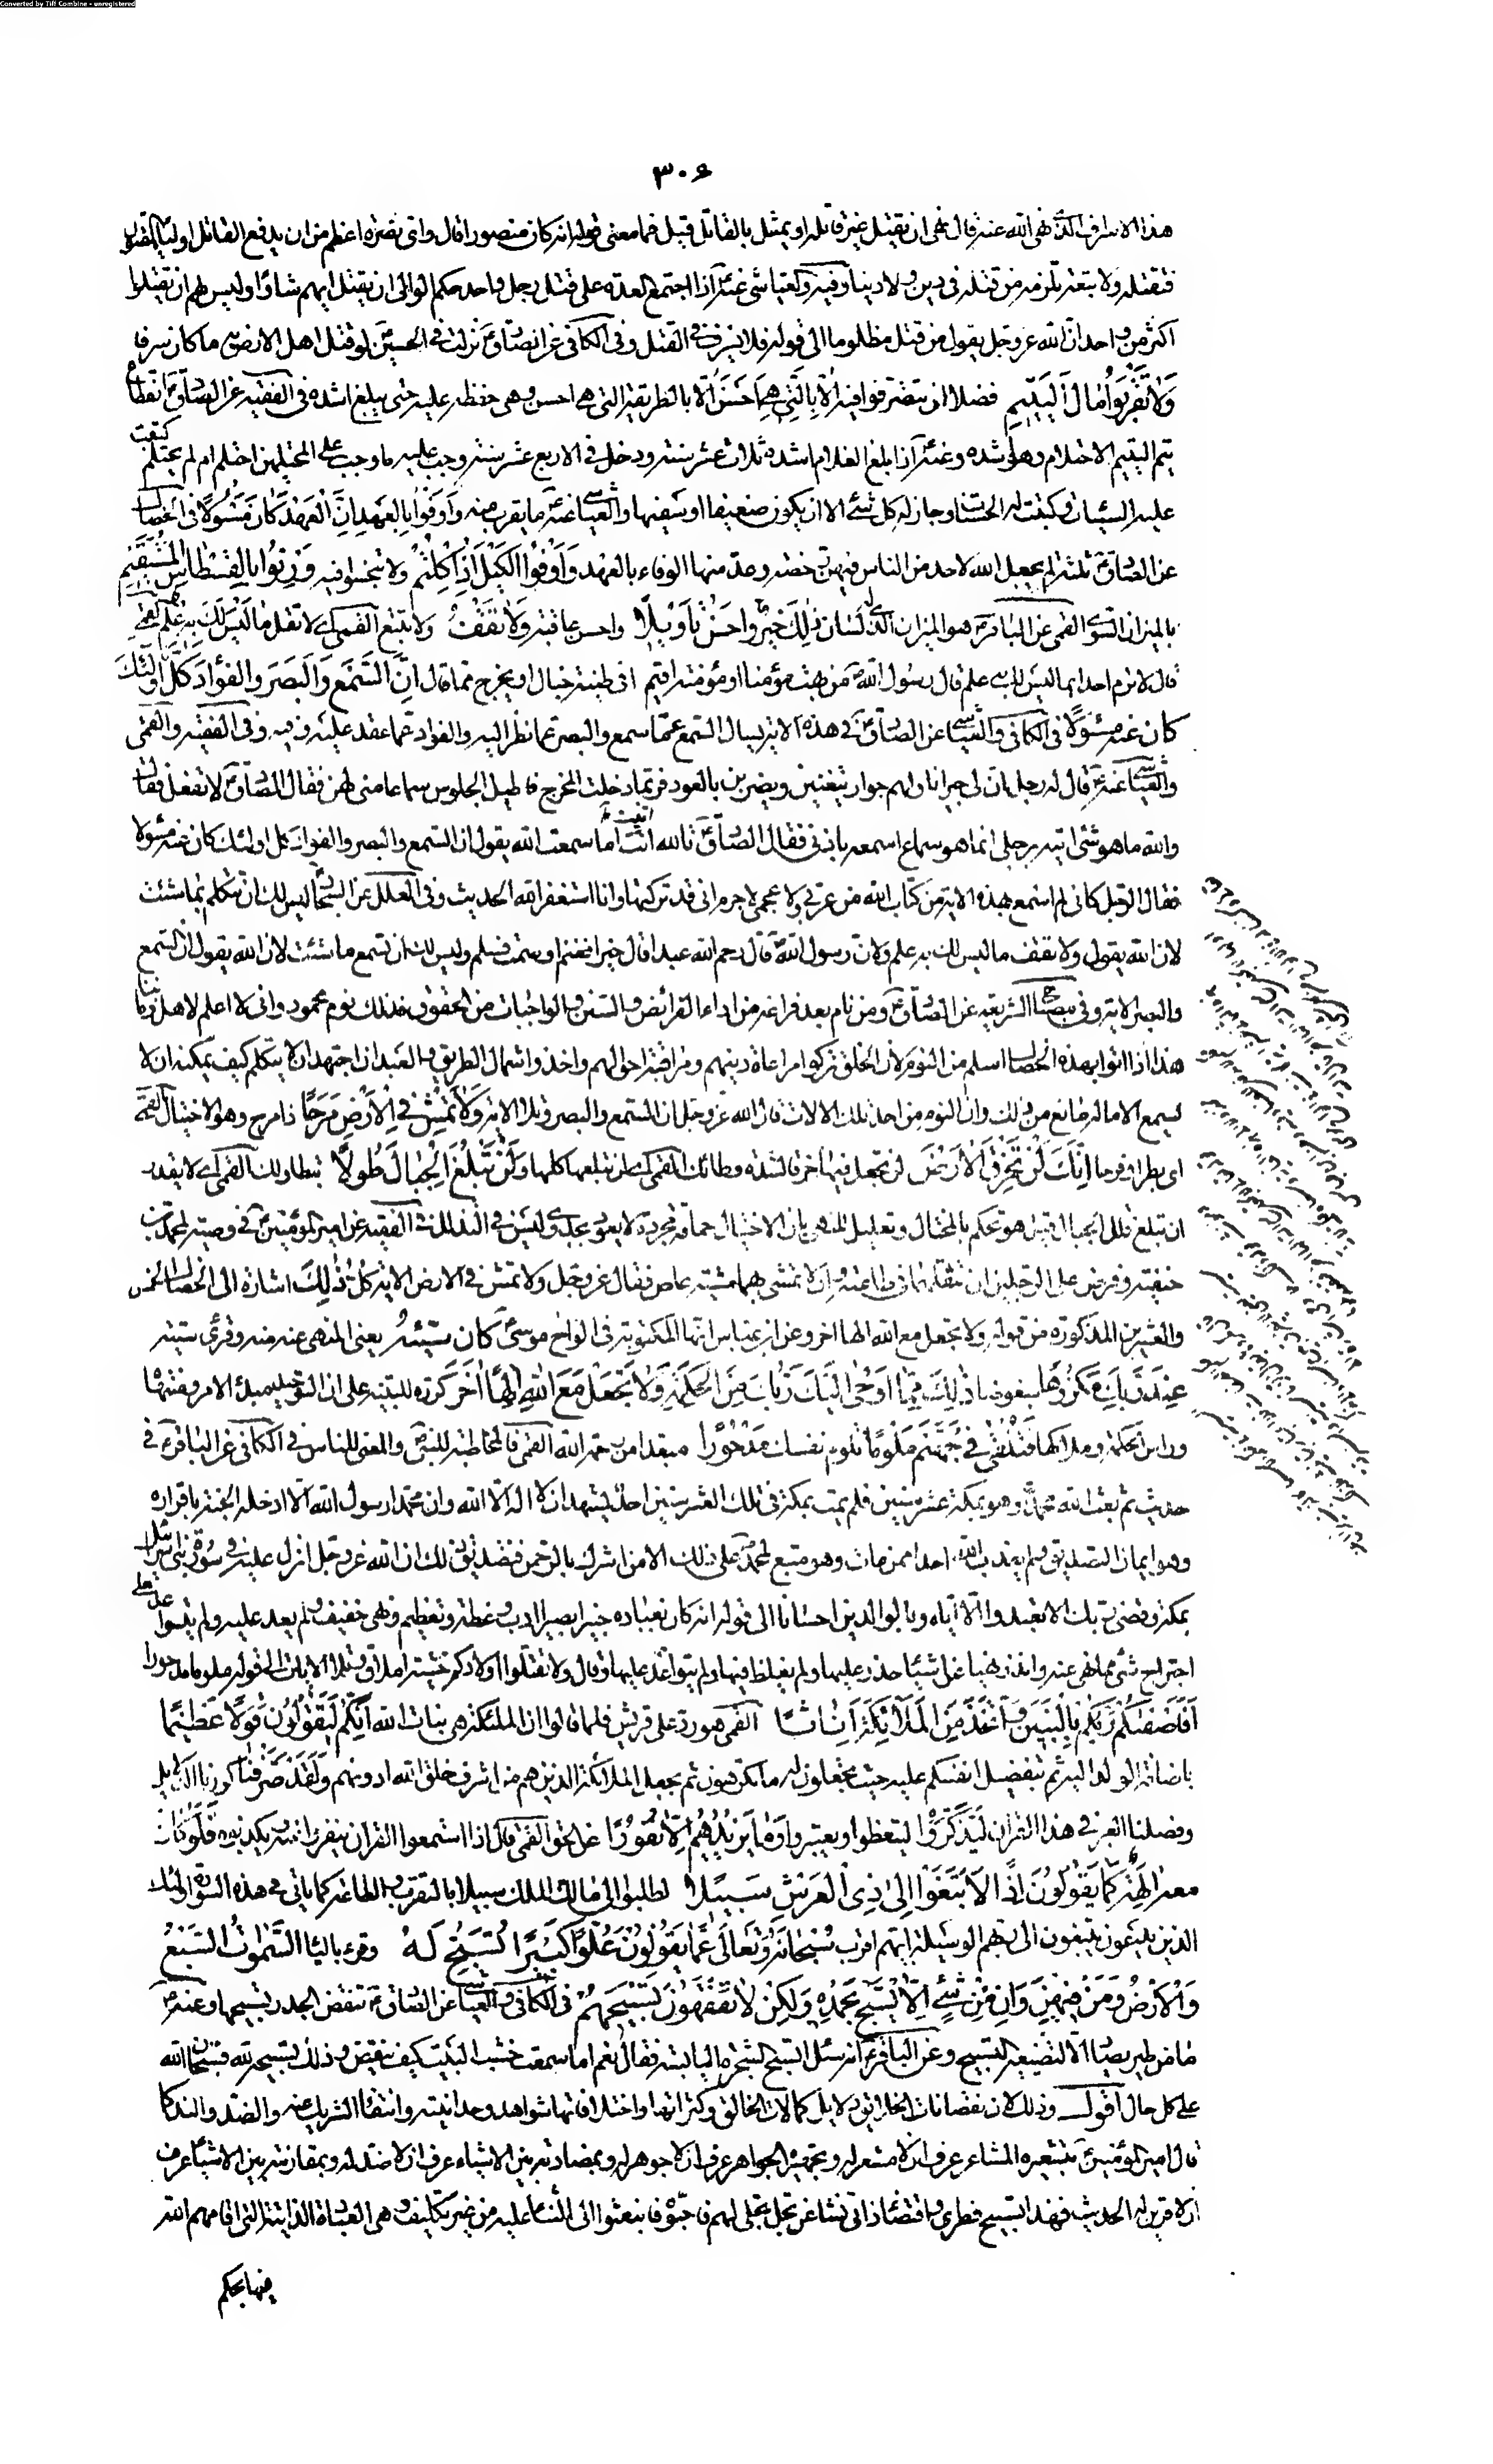 Converted by Tiff Combine - unregistered
٣٠٤
هذا الاسراف الذى نهى الله عنه قال نهى ان يقتل غير قاتله او يمثل بالقاتل قيل فما معنى قوله انه كان منصورا قال واى نصرة اعظم من ان يدفع القاتل اولياء المقتول
فيقتله ولا تبعة يلزمه من قتله فى دين ولا دنيا وفيه والعياشى عنه اذا اجتمع العدة على قتل رجل واحد حكم الوالى ان يقتل ايهم شاؤا وليس لهم ان يقتلوا
اكثر من واحد ان الله عز وجل يقول ومن قتل مظلوما الى قوله فلا يسرف فى القتل وفى الكافى عن الصادق نزلت فى الحسين لو قتل اهل الارض به ما كان سرفا
وَلا تَقْرَبُوا مالَ الْيَتِيمِ فضلا ان تتصرفوا فيه اِلّا بِالَّتِى هِىَ اَحْسَنُ الا بالطريقة التى هى احسن وهى حفظه عليه حتى يبلغ اشده فى الفقيه عن الصادق انقطاع
يتم اليتيم الاحتلام وهو اشده وعنه اذا بلغ الغلام اشده ثلاث عشرة سنة ودخل فى الاربع عشرة سنة وجب عليه ما وجب على المحتلمين احتلم ام لم يحتلم كتبت
عليه السيئات وكتبت له الحسنات وجاز له كل شئ الا ان يكون ضعيفا او سفيها والعياشى عنه ما يقرب منه وَاَوْفُوا بِالْعَهْدِ اِنَّ الْعَهْدَ كانَ مَسْئُولًا فى الخصال
عن الصادق ثلثة لم يجعل الله لاحد من الناس فيهن رخصة وعد منها الوفاء بالعهد وَاَوْفُوا الْكَيْلَ اِذا كِلْتُمْ ولا تبخسوا فيه وَزِنُوا بِالْقِسْطاسِ الْمُسْتَقِيمِ
بالميزان السوى القمى عن الباقر هو الميزان الذى له لسان ذلِكَ خَيْرٌ وَاَحْسَنُ تَأْوِيلًا واحسن عاقبة وَلا تَقْفُ ولا تتبع القمى اى لا تقل ما لَيْسَ لَكَ بِهِ عِلْمٌ القمى
قال لا ترم احدا بما ليس لك به علم قال رسول الله من بهت مؤمنا او مؤمنة اقيم فى طينة خبال او يخرج مما قال اِنَّ السَّمْعَ وَالْبَصَرَ وَالْفُؤادَ كُلُّ اُولئِكَ
كانَ عَنْهُ مَسْئُولًا فى الكافى والعياشى عن الصادق فى هذه الاية يسال السمع عما سمع والبصر عما نظر اليه والفؤاد عما عقد عليه وفيه وفى الفقيه والقمى
والعياشى عنه قال له رجل ان لى جيرانا ولهم جوار يتغنين ويضربن بالعود فربما دخلت المخرج فاطيل الجلوس سماعا منى لهن فقال الصادق لا تفعل فقال
والله ما هو شئ اتيته برجلى انما هو سماع اسمعه باذنى فقال الصادق تالله انت اما سمعت الله يقول ان السمع والبصر والفؤاد كل اولئك كان عنه مسئولا
فقال الرجل كانى لم اسمع بهذه الاية من كتاب الله من عربى ولا عجمى لا جرم انى قد تركتها وانا استغفر الله الحديث وفى العلل عن السجاد ليس لك ان تتكلم بما شئت
لان الله يقول ولا تقف ما ليس لك به علم ولان رسول الله قال رحم الله عبدا قال خيرا فغنم او صمت فسلم وليس لك ان تسمع ما شئت لان الله يقول ان السمع
والبصر الاية وفى مصباح الشريعة عن الصادق ومن نام بعد فراغه من اداء الفرائض والسنن والواجبات من الحقوق فذلك نوم محمود وانى لا اعلم لاهل زماننا
هذا اذا اتوا بهذه الخصال اسلم من النوم لان الخلق تركوا مراعاة دينهم ومراقبة احوالهم واخذوا شمال الطريق والعبد ان اجتهد ان لا يتكلم كيف يمكنه ان لا
يسمع الا ما له مانع من ذلك وان النوم من احد تلك الالات قال الله عز وجل ان السمع والبصر وتلا الاية وَلا تَمْشِ فِى الْاَرْضِ مَرَحًا ذا مرح وهو الاختيال القمى
اى بطرا وفرحا اِنَّكَ لَنْ تَخْرِقَ الْاَرْضَ لن تجعل فيها خرقا لشدة وطائك القمى اى لن تبلغها كلها وَلَنْ تَبْلُغَ الْجِبالَ طُولًا بتطاولك القمى اى لا تقدر
ان تبلغ قلل الجبال قيل هو تهكم بالمختال وتعليل للنهى بان الاختيال حماقة مجردة لا يعود بجدوى وليس فى التذلل فى الفقيه عن امير المؤمنين فى وصيته لمحمد بن
حنفية وفرض على الرجلين ان تنقلهما فى طاعته وان لا تمشى بهما مشية عاص فقال عز وجل ولا تمش فى الارض الاية كُلُّ ذلِكَ اشارة الى الخصال الخمس
والعشرين المذكورة من قوله ولا تجعل مع الله الها اخر وعن ابن عباس انها المكتوبة فى الواح موسى كانَ سَيِّئُهُ يعنى المنهى عنه منه وقرئ سيئة
عِنْدَ رَبِّكَ مَكْرُوهًا مبغوضا ذلِكَ مِمّا اَوْحى اِلَيْكَ رَبُّكَ مِنَ الْحِكْمَةِ وَلا تَجْعَلْ مَعَ اللهِ اِلهًا اخَرَ كرره للتنبيه على ان التوحيد مبدأ الامر ومنتهاه
وراس الحكمة وملاكها فَتُلْقى فِى جَهَنَّمَ مَلُومًا تلوم نفسك مَدْحُورًا مبعدا من رحمة الله القمى فالمخاطبة للنبى والمعنى للناس فى الكافى عن الباقر فى
حديث ثم بعث الله محمدا وهو بمكة عشر سنين فلم يمت بمكة فى تلك العشر سنين احد يشهد ان لا اله الا الله وان محمدا رسول الله الا ادخله الجنة باقراره
وهو ايمان التصديق ولم يعذب الله احدا ممن مات وهو متبع لمحمد على ذلك الا من اشرك بالرحمن وتصديق ذلك ان الله عز وجل انزل عليه فى سورة بنى اسرائيل
بمكة وقضى ربك الا تعبدوا الا اياه وبالوالدين احسانا الى قوله انه كان بعباده خبيرا بصيرا ادب وعظة وتعليم ونهى خفيف ولم يعد عليه ولم يتواعد على
اجتراح شئ مما نهى عنه وانذر نهيا عن اشياء حذر عليها ولم يغلظ فيها ولم يتواعد عليها وقال ولا تقتلوا اولادكم خشية املاق وتلا الايات الى قوله ملوما مدحورا
اَفَاَصْفاكُمْ رَبُّكُمْ بِالْبَنِينَ وَاتَّخَذَ مِنَ الْمَلائِكَةِ اِناثًا القمى هو رد على قريش فلما قالوا ان الملئكة هى بنات الله اِنَّكُمْ لَتَقُولُونَ قَوْلًا عَظِيمًا
باضافة الولد اليه ثم بتفضيل انفسكم عليه حيث تجعلون له ما تكرهون ثم بجعل الملائكة الذين هم من اشرف خلق الله ادونهم وَلَقَدْ صَرَّفْنا كررنا الدلايل
وفصلنا العبر فى هذَا الْقُرْانِ لِيَذَّكَّرُوا ليتعظوا ويعتبروا وَما يَزِيدُهُمْ اِلّا نُفُورًا عن الحق القمى قال اذا استمعوا القران ينفروا عنه ويكذبوه قُلْ لَوْ كانَ
مَعَهُ الِهَةٌ كَما يَقُولُونَ اِذًا لَابْتَغَوْا اِلى ذِى الْعَرْشِ سَبِيلًا لطلبوا الى مالك الملك سبيلا بالتقرب والطاعة كما ياتى فى هذه السورة اولئك
الذين يدعون يبتغون الى ربهم الوسيلة ايهم اقرب سُبْحانَهُ وَتَعالى عَمّا يَقُولُونَ عُلُوًّا كَبِيرًا تُسَبِّحُ لَهُ وقرء بالياء السَّمواتُ السَّبْعُ
وَالْاَرْضُ وَمَنْ فِيهِنَّ وَاِنْ مِنْ شَئٍ اِلّا يُسَبِّحُ بِحَمْدِهِ وَلكِنْ لا تَفْقَهُونَ تَسْبِيحَهُمْ فى الكافى والعياشى عن الصادق تنقض الجدر تسبيحها وعنه
ما من طير يصاد الا بتضييعه التسبيح وعن الباقر انه سئل اتسبح الشجرة اليابسة فقال نعم اما سمعت خشب البيت كيف ينقض وذلك تسبيحه لله فسبحان الله
على كل حال اقول وذلك لان نقصانات الخلائق دلايل كمالات الخالق وكثراتها واختلافاتها شواهد وحدانيته وانتفاء الشريك عنه والضد والند كما
قال امير المؤمنين بتشعيره المشاعر عرف ان لا مشعر له وبتجهيره الجواهر عرف ان لا جوهر له وبمضادته بين الاشياء عرف ان لا ضد له وبمقارنته بين الاشياء عرف
ان لا قرين له الحديث فهذا تسبيح فطرى واقتضاء ذاتى نشا عن تجل تجلى لهم فاحبوه فابتعثوا الى الثناء عليه من غير تكليف وهى العبادة الذاتية التى اقامهم الله
فيها بحكم